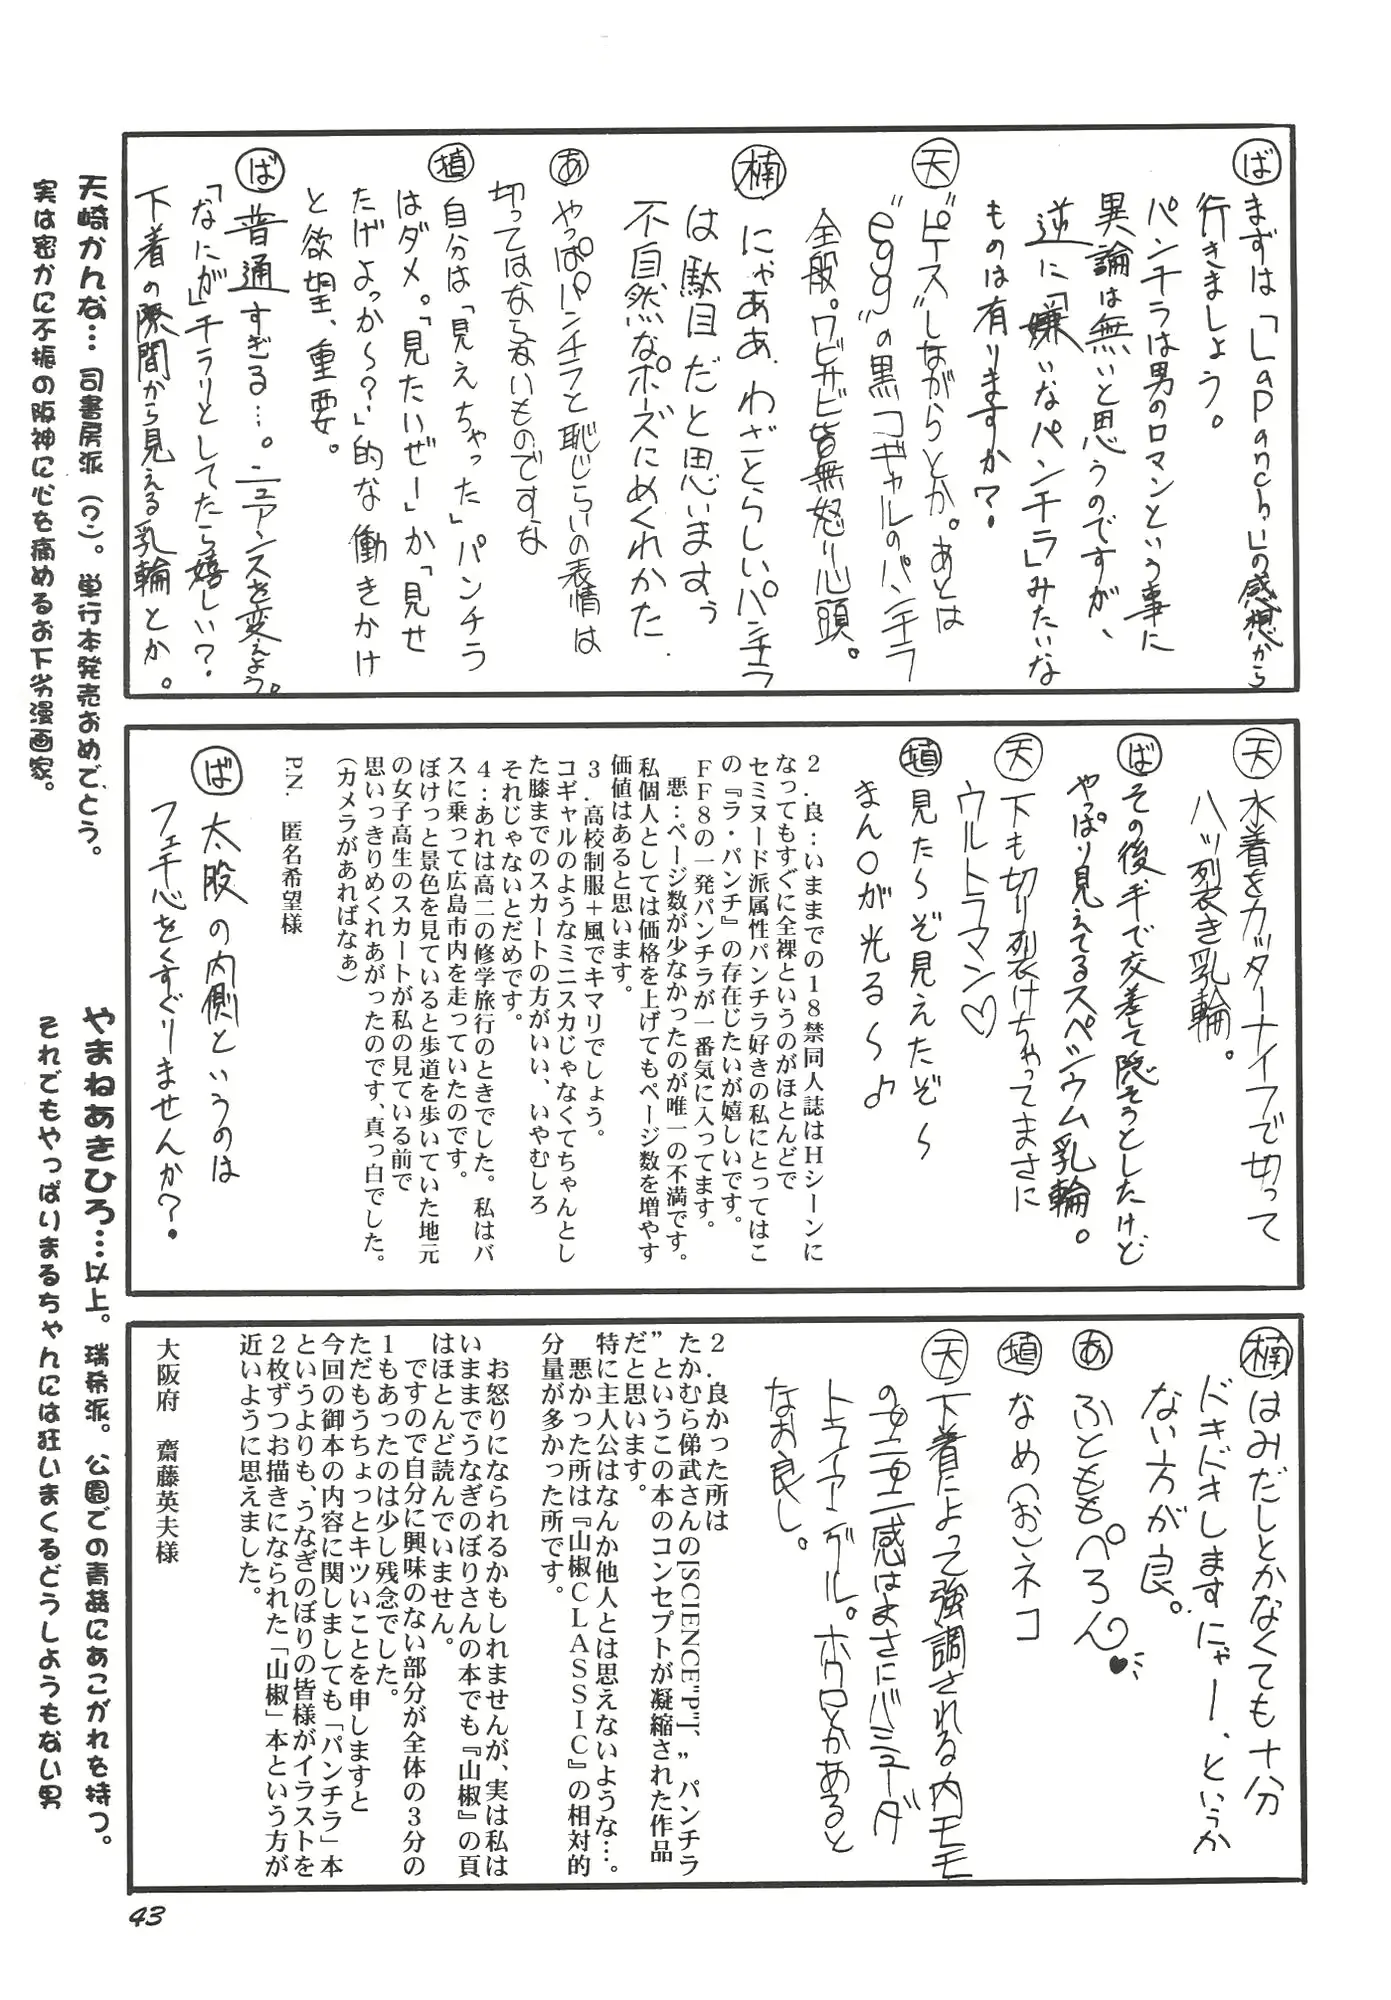 ば まずは「Lapanch」の感想から
行きましょう。
パンチラは男のロマンという事に
異論は無いと思うのですが、
逆に「嫌いなパンチラ」みたいな
ものは有りますか?
天 "ピース"しながらとか。あとは
"egg"の黒コギャルのパンチラ
全般。ワビサビ皆無怒り心頭。
楠 にゃああ、わざとらしいパンチラ
は駄目だと思いますぅ
不自然なポーズにめくれかた
あ やっぱパンチラと恥じらいの表情は
切ってはならないものですな
埴 自分は「見えちゃった」パンチラ
はダメ。「見たいぜー」か「見せ
たげよっか〜?」的な働きかけ
と欲望、重要。
ば 普通すぎる…。ニュアンスを変えよう。
「なにが」チラリとしてたら嬉しい?
下着の隙間から見える乳輪とか。
天 水着をカッターナイフで切って
ハッ裂き乳輪。
ば その後手で交差して隠そうとしたけど
やっぱり見えてるスペシウム乳輪。
天 下も切り裂けちゃってまさに
ウルトラマン♡
埴 見たらぞ見えたぞ〜
まん○が光る〜♪
2.良:いままでの18禁同人誌はHシーンに
なってもすぐに全裸というのがほとんどで
セミヌード派属性パンチラ好きの私にとってはこ
の『ラ・パンチ』の存在じたいが嬉しいです。
FF8の一発パンチラが一番気に入ってます。
悪:ページ数が少なかったのが唯一の不満です。
私個人としては価格を上げてもページ数を増やす
価値はあると思います。
3.高校制服+風でキマリでしょう。
コギャルのようなミニスカじゃなくてちゃんとし
た膝までのスカートの方がいい、いやむしろ
それじゃないとだめです。
4:あれは高二の修学旅行のときでした。私はバ
スに乗って広島市内を走っていたのです。
ぼけっと景色を見ていると歩道を歩いていた地元
の女子高生のスカートが私の見ている前で
思いっきりめくれあがったのです、真っ白でした。
(カメラがあればなぁ)
P.N. 匿名希望様
ば 太股の内側というのは
フェチ心をくすぐりませんか?
楠 はみだしとかなくても十分
ドキドキしますにゃー、というか
ない方が良。
あ ふとももぺろん
埴 なめ(お)ネコ
天 下着によって強調される内モモ
のプニプニ感はまさにバミューダ
トライアングル。ホクロとかあると
なお良し。
2.良かった所は
たかむら俤武さんの[SCIENCE"P"]、„パンチラ
”というこの本のコンセプトが凝縮された作品
だと思います。
特に主人公はなんか他人とは思えないような…。
悪かった所は『山椒CLASSIC』の相対的
分量が多かった所です。
お怒りになられるかもしれませんが、実は私は
いままでうなぎのぼりさんの本でも『山椒』の頁
はほとんど読んでいません。
ですので自分に興味のない部分が全体の3分の
1もあったのは少し残念でした。
ただもうちょっとキツいことを申しますと
今回の御本の内容に関しましても「パンチラ」本
というよりも、うなぎのぼりの皆様がイラストを
2枚ずつお描きになられた「山椒」本という方が
近いように思えました。
大阪府 齋藤英夫様
天崎かんな…司書房派(?)。単行本発売おめでとう。
実は密かに不振の阪神に心を痛めるお下劣漫画家。
やまねあきひろ…以上。瑞希派。公園での青姦にあこがれを持つ。
それでもやっぱりまるちゃんには狂いまくるどうしようもない男
43